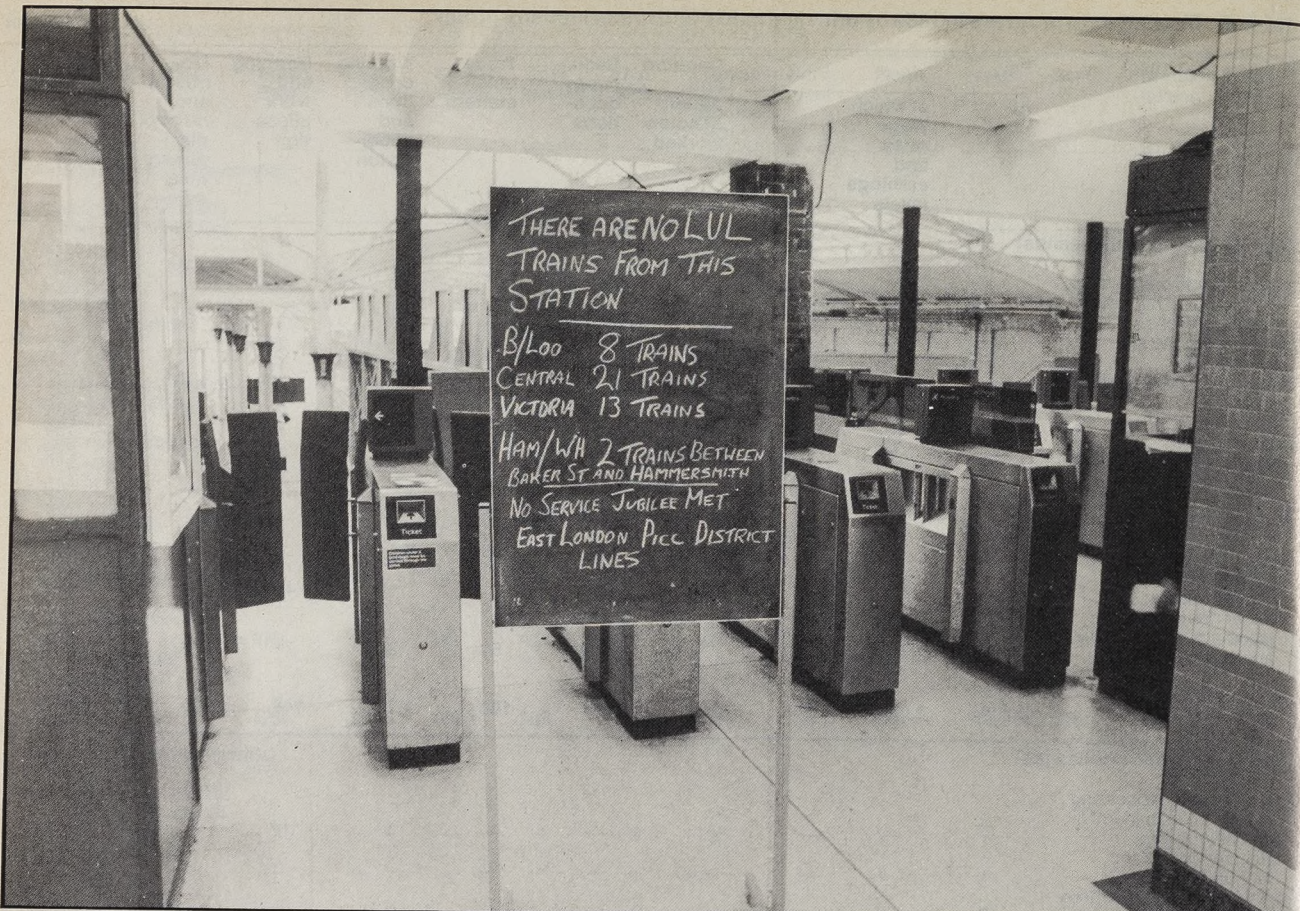 THERE ARE NO LUL
TRAINS FROM THIS
STATION
B/LOO 8 TRAINS
CENTRAL 21 TRAINS
VICTORIA 13 TRAINS
HAM/WH 2 TRAINS BETWEEN
BAKER ST AND HAMMERSMITH
NO SERVICE JUBILEE MET
EAST LONDON PICC DISTRICT
LINES
Ticket
Ticket